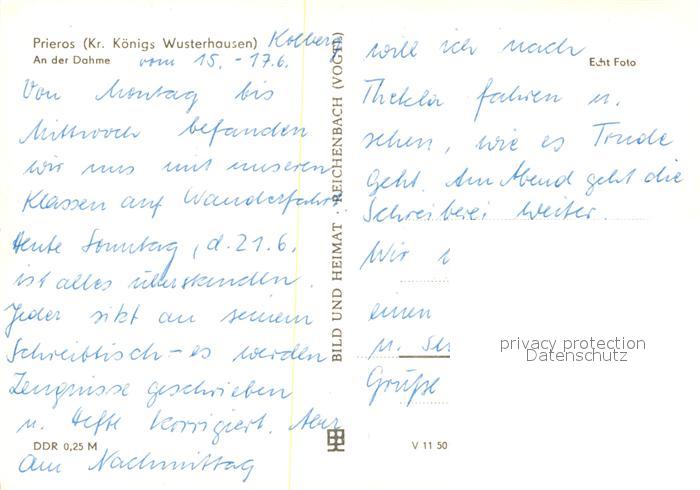 Prieros (Kr. Königs Wusterhausen) Kolberg
An der Dahme vom 15. - 17.6.
Von Montag bis
Mittwoch befanden
wir uns mit unseren
Klassen auf Wanderfahrt.
Heute Sonntag, d. 21.6.
ist alles überstanden.
Jeder sitzt an seinem
Schreibtisch - es werden
Zeugnisse geschrieben
u. Hefte korrigiert. Aber
am Nachmittag
DDR 0,25 M
BILD UND HEIMAT · REICHENBACH (VOGTL)
Echt Foto
will ich nach
Thekla fahren u.
sehen, wie es Trude
geht. Am Abend geht die
Schreiberei weiter.
Wir
einen
u.
Grüße
V 11 50
privacy protection
Datenschutz